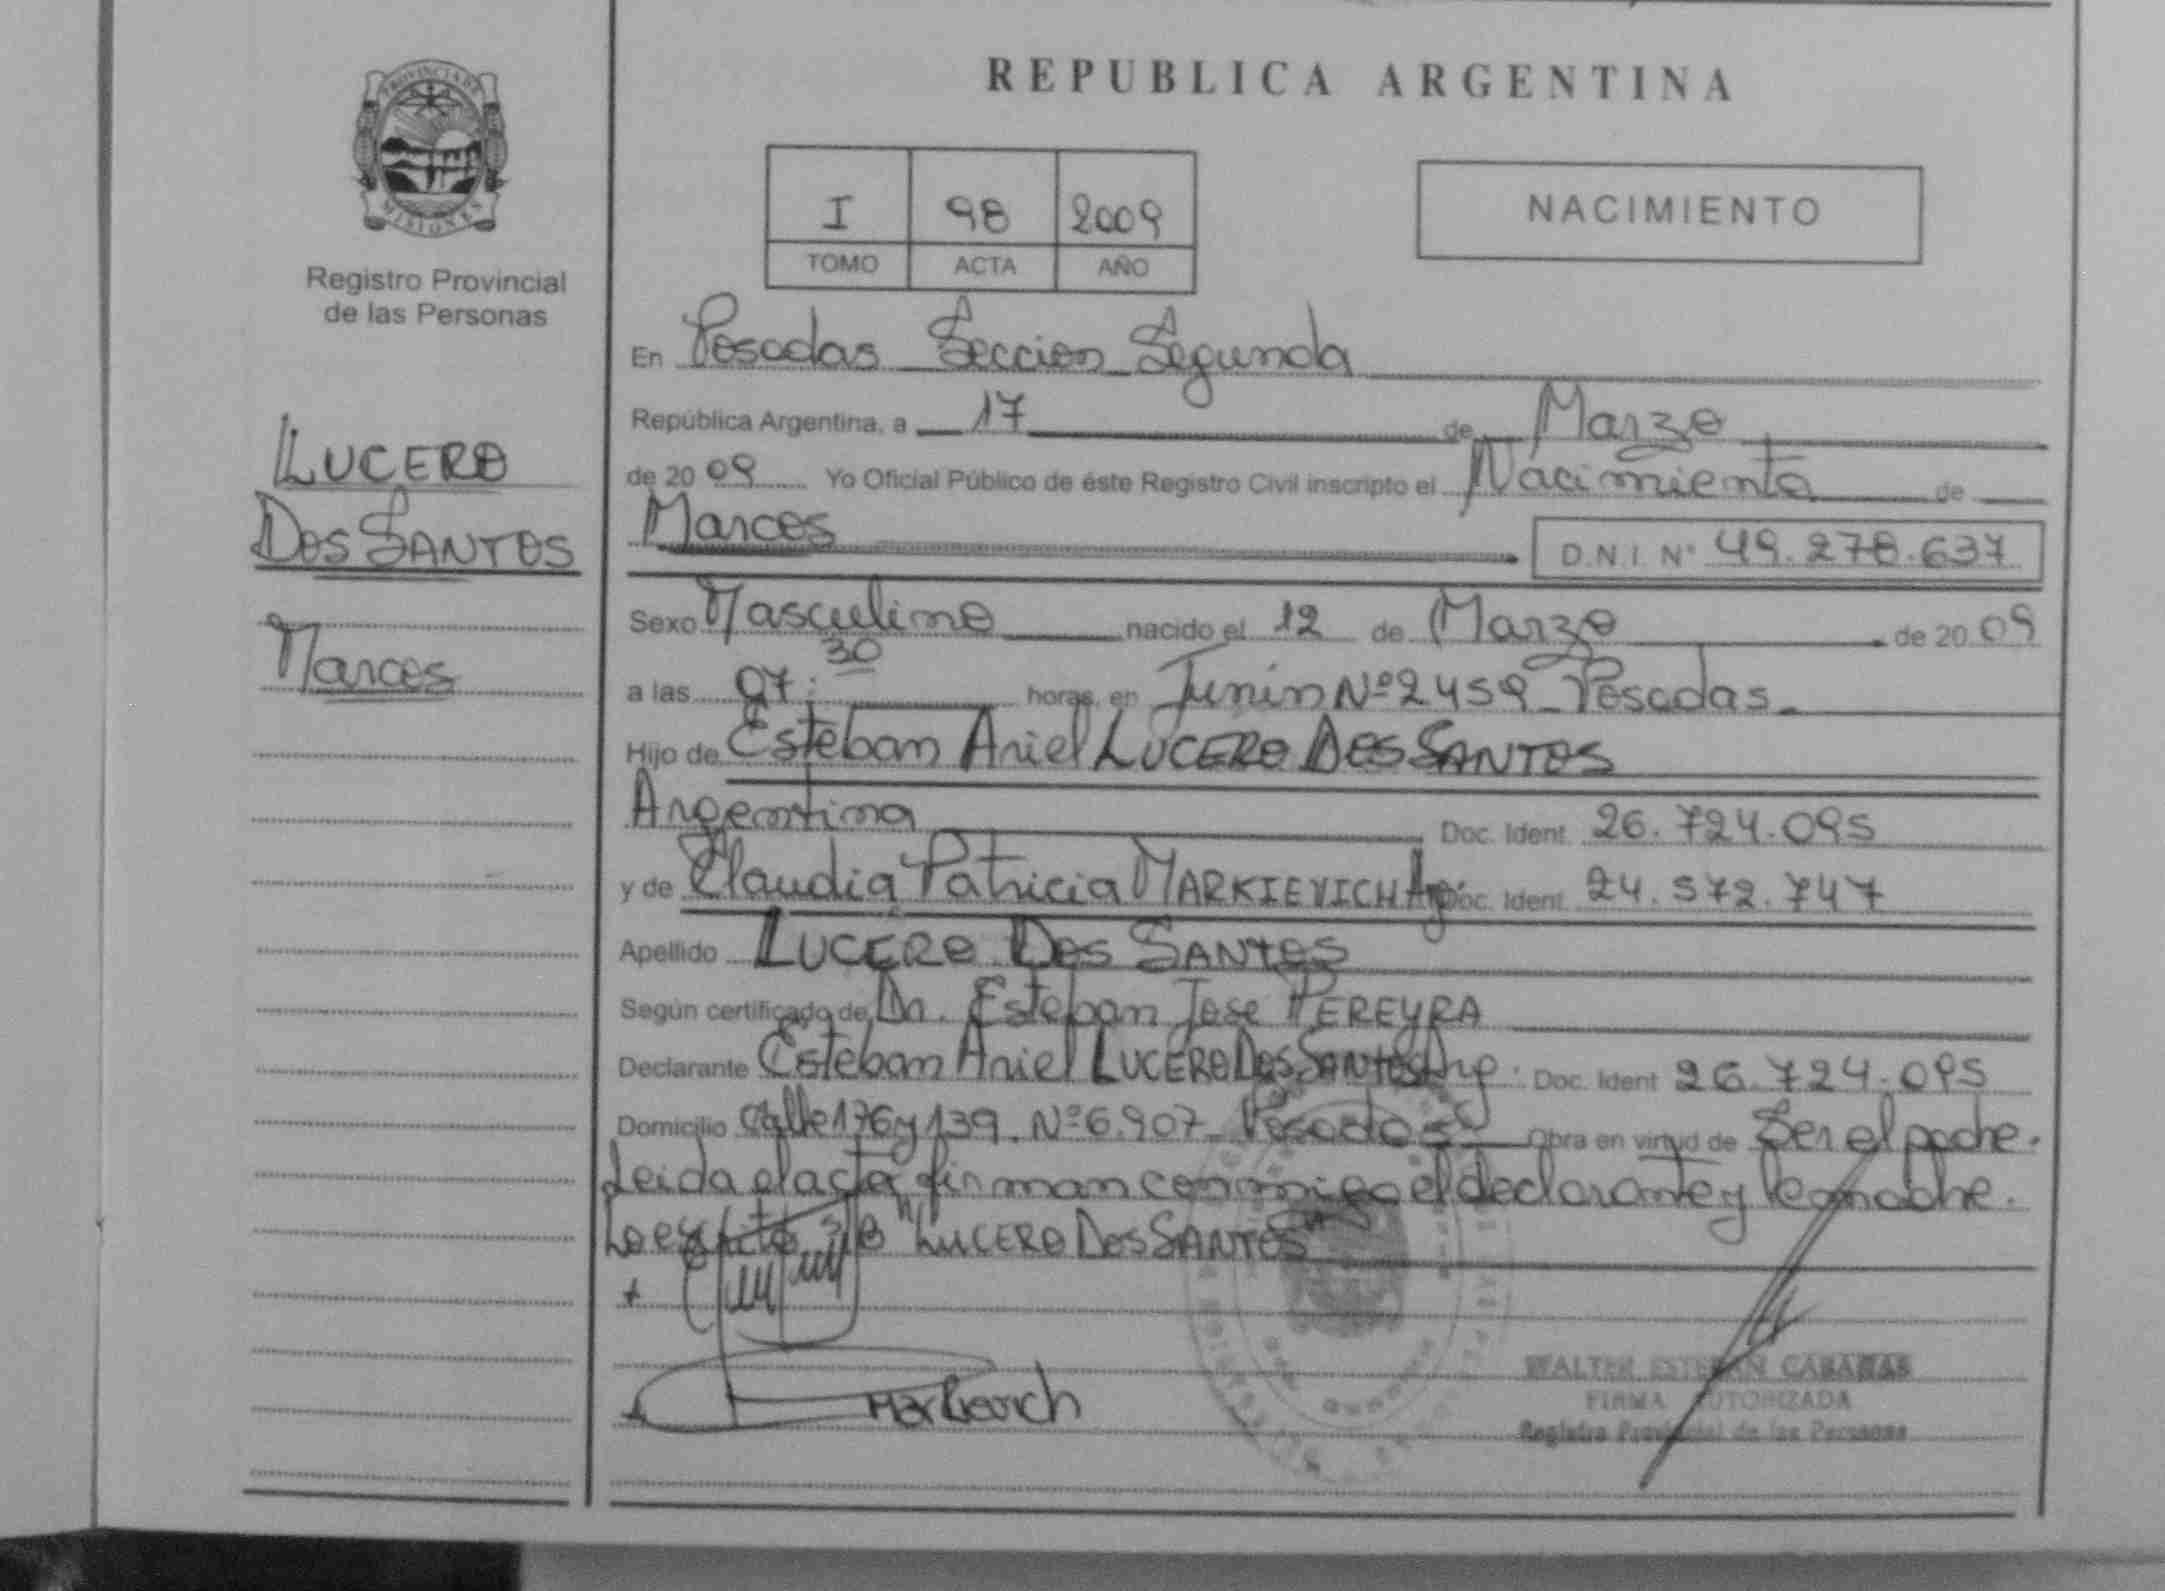 PROVINCIA DE
MISIONES
Registro Provincial
de las Personas
LUCERO
DOS SANTOS
Marcos
REPUBLICA ARGENTINA
I 98 2009
TOMO ACTA AÑO
NACIMIENTO
En Posadas Seccion Segunda
República Argentina, a 17 de Marzo
de 20 09 Yo Oficial Público de éste Registro Civil inscripto el Nacimiento de
Marcos D.N.I. Nº 49.278.637
Sexo Masculino nacido el 12 de Marzo de 20 09
a las 07:30 horas, en Junin Nº 2459 Posadas
Hijo de Esteban Ariel LUCERO DOS SANTOS
Argentina Doc. Ident. 26.724.095
y de Claudia Patricia MARKIEVICH Arg. Doc. Ident. 24.572.747
Apellido LUCERO DOS SANTOS
Según certificado de Dr. Esteban Jose PEREYRA
Declarante Esteban Ariel LUCERO DOS SANTOS Arg. Doc. Ident 26.724.095
Domicilio Calle 176 y 139. Nº 6.907 Posadas Obra en virtud de Ser el padre.
Leida el acta, firman conmigo el declarante y la madre.
Lo escrito s/b "LUCERO DOS SANTOS"
WALTER ESTEBAN CABAÑAS
FIRMA AUTORIZADA
Registro Provincial de las Personas